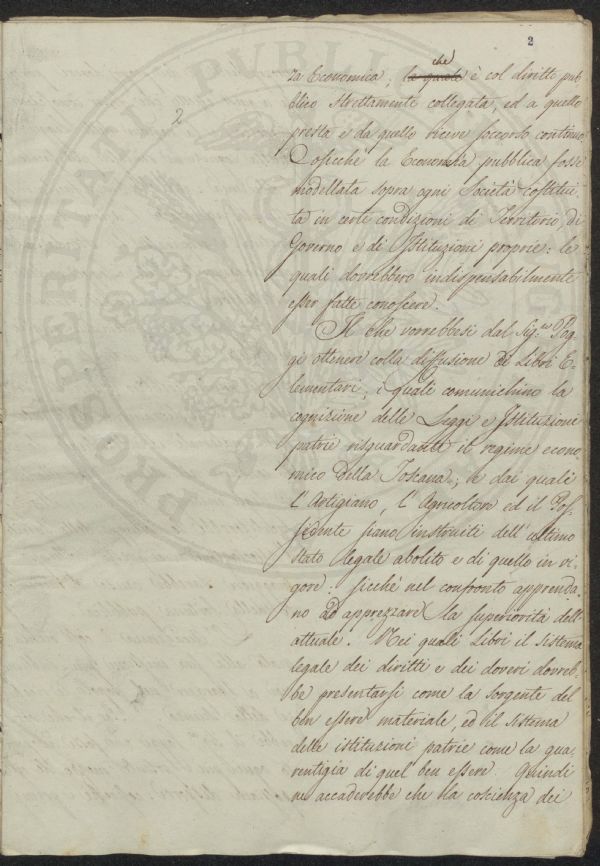 2
2
za Economica, la quale che è col diritto pub
blico strettamente collegata, ed a quello
presta e da quello riceve soccorso continuo
Cosichè la Economia pubblica fosse
modellata sopra ogni Società costitui-
ta in certe condizioni di Territorio, di
Governo e di Istituzioni proprie: le
quali dovrebbero indispensabilmente
esser fatte conoscere.
Il che vorrebbesi dal Sig.re Pog-
gi ottenere colla diffusione di Libri E-
lementari, i quali comunichino la
cognizione delle Leggi e Istituzioni
patrie risguardanti il regime econo-
mico della Toscana; e dai quali
l'Artigiano, l'Agricoltore ed il Pos-
sidente siano instruiti dell'ultimo
stato legale abolito e di quello in vi-
gore: sicchè nel confronto apprenda-
no ad apprezzare la superiorità dell'
attuale. Nei quali Libri il sistema
legale dei diritti e dei doveri dovreb-
be presentarsi come la sorgente del
ben essere materiale, ed il sistema
delle istituzioni patrie come la gua-
rentigia di quel ben essere. Quindi
ne accaderebbe che la coscienza dei